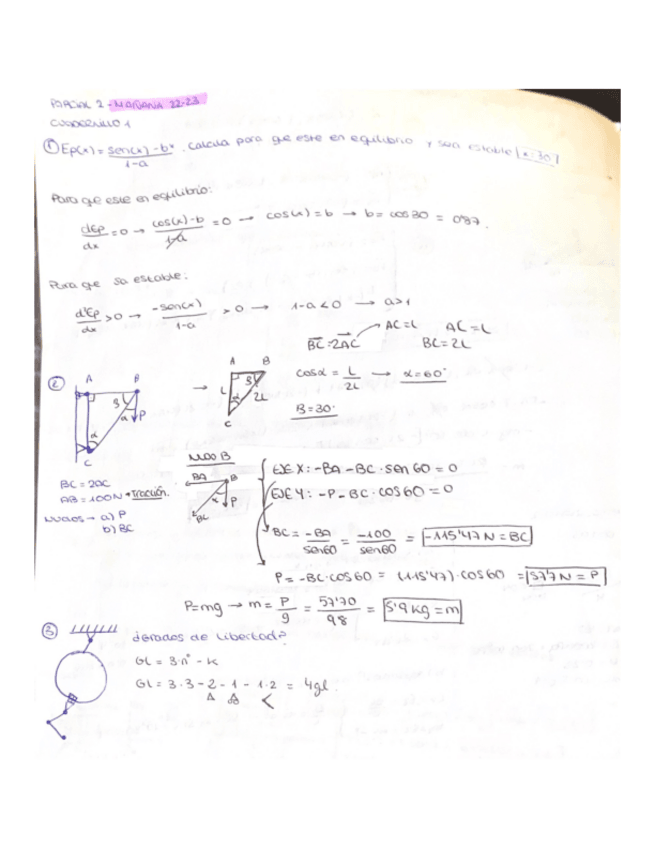 PARCIAL 2 - MAÑANA 22-23
CUADERNILLO 1
① Ep(x) = sen(x) - bx / 1-a . Calcula para que este en equilibrio y sea estable x=30
Para que este en equilibrio:
dEp/dx = 0 → cos(x) - b / 1-a = 0 → cos(x) = b → b = cos30 = 0'87.
Para que sea estable:
d²Ep/dx > 0 → -sen(x) / 1-a > 0 → 1-a < 0 → a>1
BC = 2AC → AC = L
AC = L
BC = 2L
② A B
β
α P
α
C
→
A B
L β 2L
α
C
cosα = L/2L → α = 60°
B = 30°
BC = 2AC
AB = 100N → tracción.
a) P
b) BC
NUDO B
BA B
α P
BC
EJE X: -BA - BC · sen 60 = 0
EJE Y: -P - BC · cos 60 = 0
BC = -BA / sen60 = -100 / sen60 = -115'47 N = BC
P = -BC · cos 60 = (115'47) · cos 60 = 57'7 N = P
P = mg → m = P/g = 57'70 / 9'8 = 5'9 kg = m
③ ¿Grados de libertad?
GL = 3·n° - k
GL = 3·3 - 2 - 1 - 1·2 = 4gl.